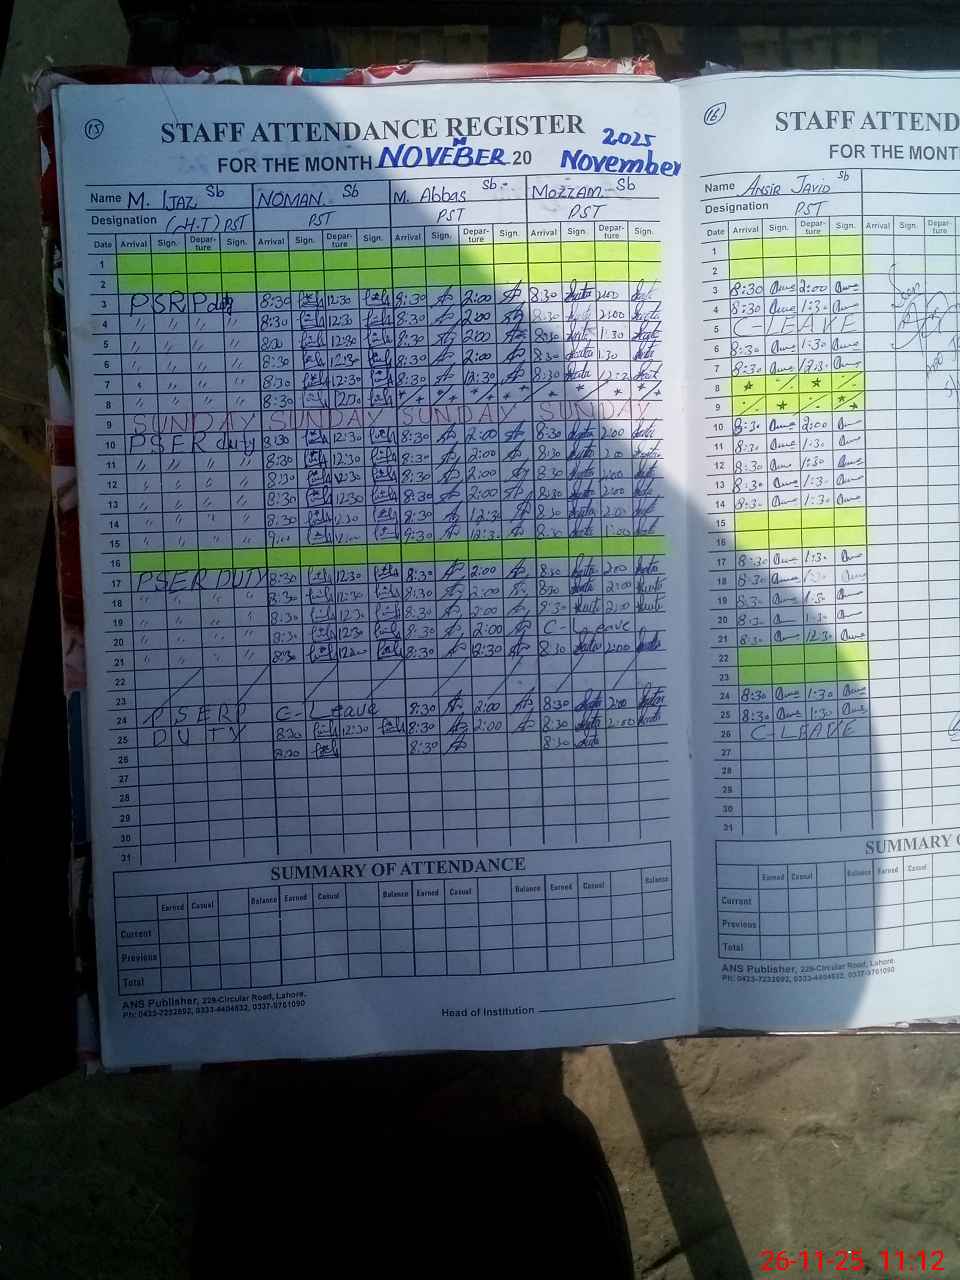 15
STAFF ATTENDANCE REGISTER
2025
FOR THE MONTH NOVEMBER 20 November
Name M. IJAZ Sb NOMAN Sb M. Abbas Sb MOZZAM Sb
Designation (H.T) PST PST PST PST
Date Arrival Sign. Depar-ture Sign. Arrival Sign. Depar-ture Sign. Arrival Sign. Depar-ture Sign. Arrival Sign. Depar-ture Sign.
1
2
3 PSRP duty 8:30 12:30 8:30 2:00 8:30 2:00
4 〃 〃 〃 〃 8:30 12:30 8:30 2:00 8:30 2:00
5 〃 〃 〃 〃 8:30 12:30 8:30 2:00 8:30 1:30
6 〃 〃 〃 〃 8:30 12:30 8:30 2:00 8:30 1:30
7 〃 〃 〃 〃 8:30 12:30 8:30 12:30 8:30
8 〃 〃 〃 〃 8:30
9 SUNDAY SUNDAY SUNDAY SUNDAY
10 PSER duty 8:30 12:30 8:30 2:00 8:30 2:00
11 〃 〃 〃 〃 8:30 12:30 8:30 2:00 8:30 2:00
12 〃 〃 〃 〃 8:30 12:30 8:30 2:00 8:30 2:00
13 〃 〃 〃 〃 8:30 12:30 8:30 2:00 8:30 2:00
14 〃 〃 〃 〃 8:30 12:30 8:30 12:30 8:30 2:00
15 〃 〃 〃 〃 12:30 1:00
16
17 PSER DUTY 8:30 12:30 8:30 2:00 8:30 2:00
18 〃 〃 〃 〃 8:30 12:30 8:30 2:00 8:30 2:00
19 〃 〃 〃 〃 8:30 12:30 8:30 2:00 8:30 2:00
20 〃 〃 〃 〃 8:30 12:30 8:30 2:00 C-Leave
21 〃 〃 〃 〃 8:30 8:30 12:30 8:30 2:00
22
23
24 PSERP C-Leave 8:30 2:00 8:30 2:00
25 DUTY 8:30 12:30 8:30 2:00 8:30 2:00
26 8:30 8:30 8:30
27
28
29
30
31
SUMMARY OF ATTENDANCE
Earned Casual Balance Earned Casual Balance Earned Casual Balance Earned Casual Balance
Current
Previous
Total
ANS Publisher, 229-Circular Road, Lahore.
Ph: 0423-7232692, 0333-4404632, 0337-9761090
Head of Institution
16
STAFF ATTEND
FOR THE MONT
Name ANSIR JAVID Sb
Designation PST
Date Arrival Sign. Depar-ture Sign. Arrival Sign. Depar-ture
1
2
3 8:30 2:00
4 8:30 1:30
5 C-LEAVE
6 8:30 1:30
7 8:30 12:30
8
9
10 8:30 2:00
11 8:30 1:30
12 8:30 1:30
13 8:30 1:30
14 8:30 1:30
15
16
17 8:30 1:30
18 8:30 1:30
19 8:30 1:30
20 8:30 1:30
21 8:30 12:30
22
23
24 8:30 1:30
25 8:30 1:30
26 C-LEAVE
27
28
29
30
31
SUMMARY O
Earned Casual Balance Earned Casual
Current
Previous
Total
ANS Publisher, 229-Circular Road, Lahore.
Ph: 0423-7232692, 0333-4404632, 0337-9761090
26-11-25 11:12